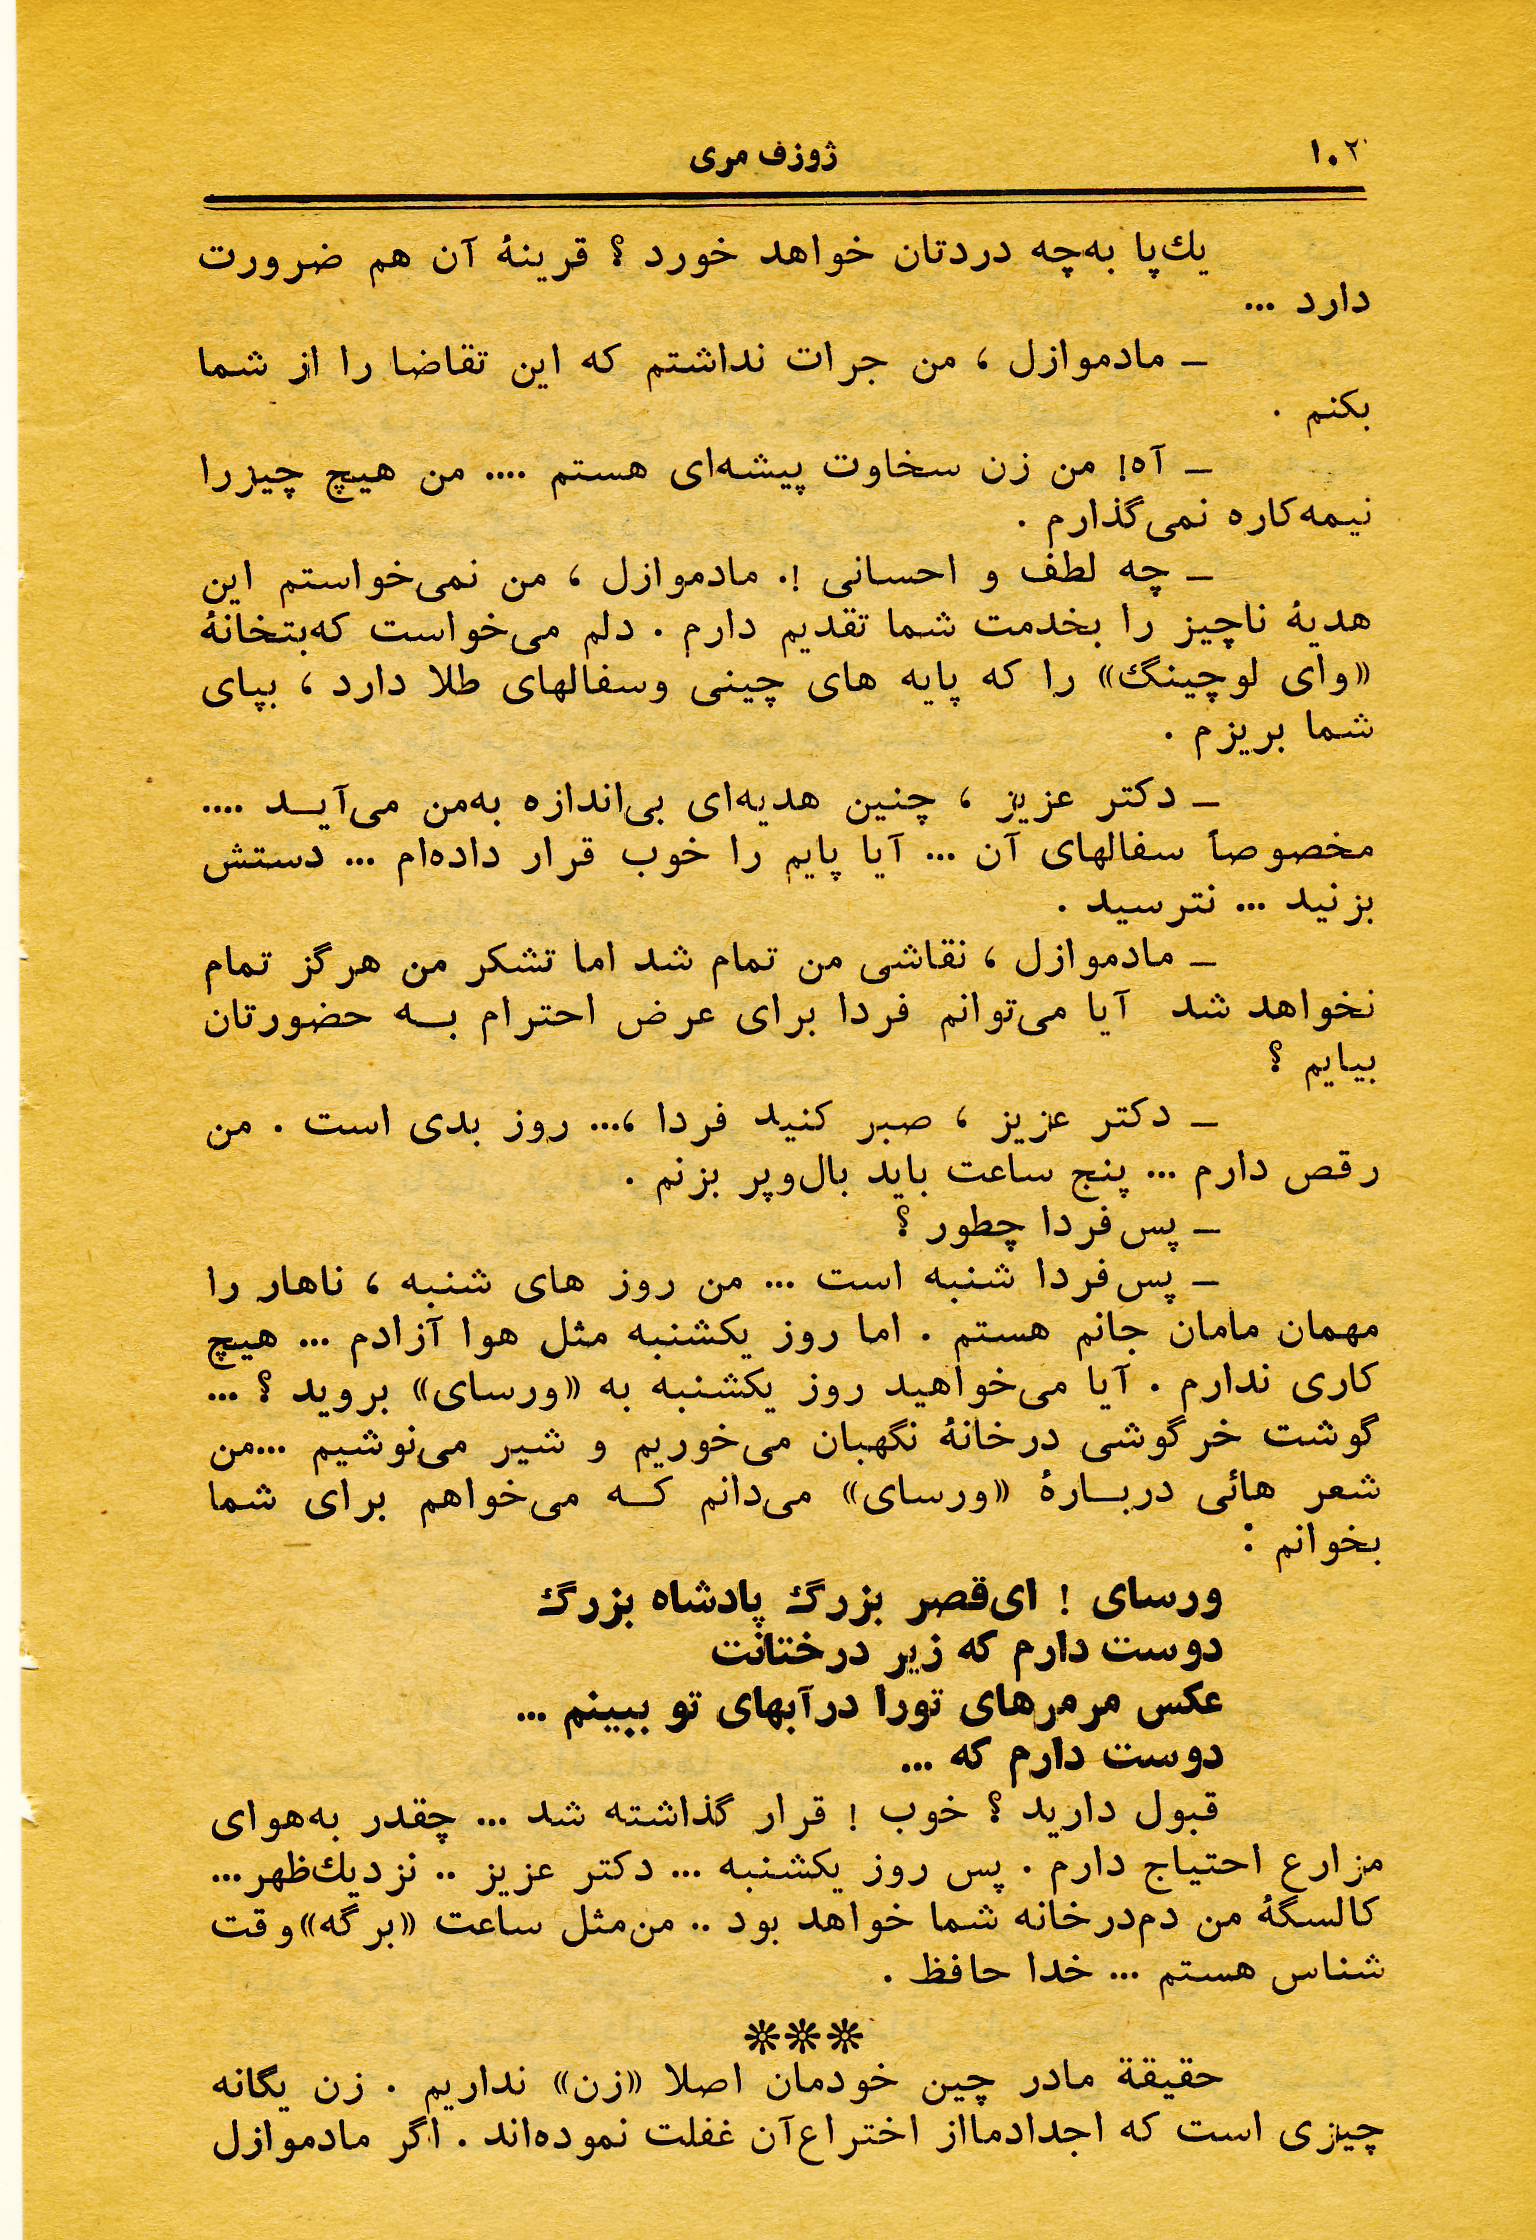 ۱۰۲
ژوزف مری
یك‌پا به‌چه دردتان خواهد خورد ؟ قرینهٔ آن هم ضرورت
دارد ...
ـ مادموازل ، من جرات نداشتم که این تقاضا را از شما
بکنم .
ـ آه! من زن سخاوت پیشه‌ای هستم .... من هیچ چیزرا
نیمه‌کاره نمی‌گذارم .
ـ چه لطف و احسانی !. مادموازل ، من نمی‌خواستم این
هدیهٔ ناچیز را بخدمت شما تقدیم دارم . دلم می‌خواست که‌بتخانهٔ
«وای لوچینگ» را که پایه های چینی وسفالهای طلا دارد ، بپای
شما بریزم .
ـ دکتر عزیز ، چنین هدیه‌ای بی‌اندازه به‌من می‌آیـد ....
مخصوصاً سفالهای آن ... آیا پایم را خوب قرار داده‌ام ... دستش
بزنید ... نترسید .
ـ مادموازل ، نقاشی من تمام شد اما تشکر من هرگز تمام
نخواهد شد آیا می‌توانم فردا برای عرض احترام بـه حضورتان
بیایم ؟
ـ دکتر عزیز ، صبر کنید فردا ،... روز بدی است . من
رقص دارم ... پنج ساعت باید بال‌وپر بزنم .
ـ پس‌فردا چطور ؟
ـ پس‌فردا شنبه است ... من روز های شنبه ، ناهار را
مهمان مامان جانم هستم . اما روز یکشنبه مثل هوا آزادم ... هیچ
کاری ندارم . آیا می‌خواهید روز یکشنبه به «ورسای» بروید ؟ ...
گوشت خرگوشی درخانهٔ نگهبان می‌خوریم و شیر می‌نوشیم ...من
شعر هائی دربـارهٔ «ورسای» می‌دانم کـه می‌خواهم برای شما
بخوانم :
ورسای ! ای‌قصر بزرگ پادشاه بزرگ
دوست دارم که زیر درختانت
عکس مرمرهای تورا درآبهای تو ببینم ...
دوست دارم که ...
قبول دارید ؟ خوب ! قرار گذاشته شد ... چقدر به‌هوای
مزارع احتیاج دارم . پس روز یکشنبه ... دکتر عزیز .. نزدیك‌ظهر...
کالسگهٔ من دم‌درخانه شما خواهد بود .. من‌مثل ساعت «برگه»وقت
شناس هستم ... خدا حافظ .
❊❊❊
حقیقة مادر چین خودمان اصلا «زن» نداریم . زن یگانه
چیزی است که اجدادمااز اختراع‌آن غفلت نموده‌اند . اگر مادموازل